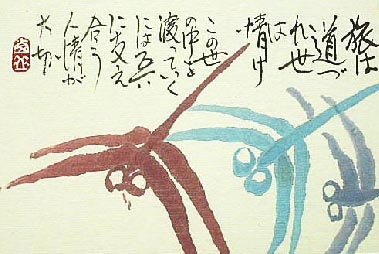 旅は
道づ
れ世
は
情け
この世
の中を
渡っていく
には互い
に支え
合う
人情が
大切